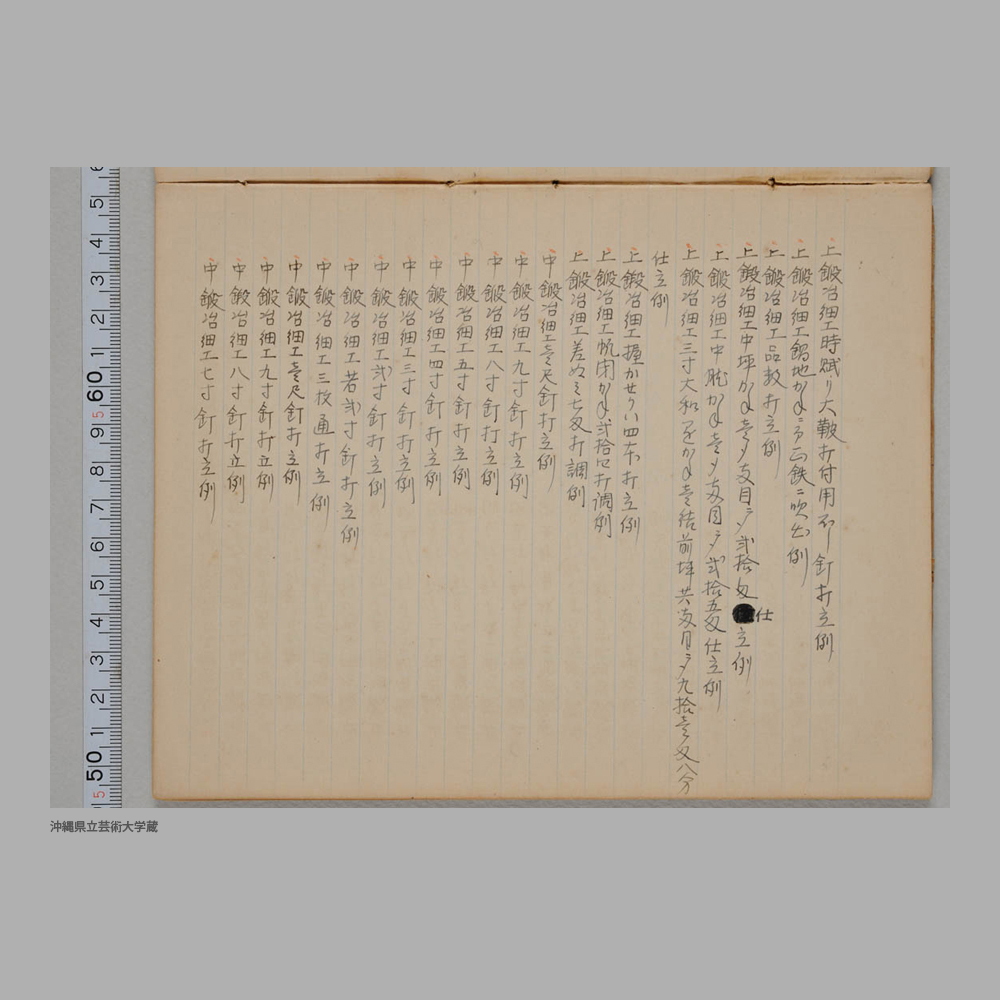 上鍛冶細工時賦り大鞁打付用不ー釘打立例
上鍛冶細工鍋地かねニ而正鉄ニ吹出例
上鍛冶細工品数打立例
上鍛冶細工中坪かね壱〆支目ニ〆弐拾匁仕立例
上鍛冶細工中胘かね壱〆支目ニ〆弐拾五匁仕立例
上鍛冶細工三寸大和 かね壱結前坪共支目ニ〆九拾壱匁八分
仕立例
上鍛冶細工 かせらい四本打立例
上鍛冶細工帆閉かね弐拾口打調例
上鍛冶細工差ぬミ七匁打調例
中鍛冶細工壱尺釘打立例
中鍛冶細工九寸釘打立例
中鍛冶細工八寸釘打立例
中鍛冶細工五寸釘打立例
中鍛冶細工四寸釘打立例
中鍛冶細工三寸釘打立例
中鍛冶細工弐寸釘打立例
中鍛冶細工若弐寸釘打立例
中鍛冶細工三枚通打立例
中鍛冶細工壱尺釘打立例
中鍛冶細工九寸釘打立例
中鍛冶細工八寸釘打立例
中鍛冶細工七寸釘打立例
沖縄県立芸術大学蔵